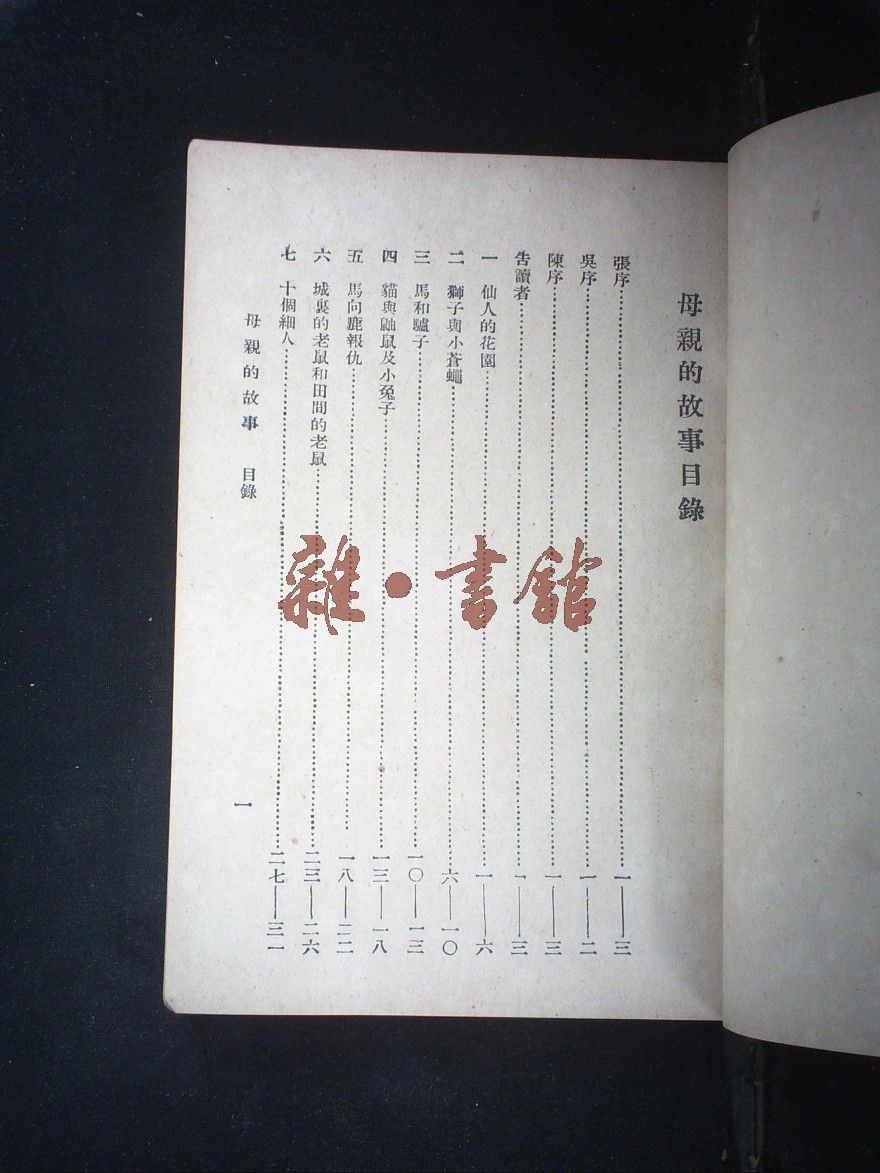 母親的故事目錄
張序……一——三
吳序……一——二
陳序……一——三
告讀者……一——三
一 仙人的花園……一——六
二 獅子與小蒼蠅……六——一〇
三 馬和驢子……一〇——一三
四 貓與鼬鼠及小兔子……一三——一八
五 馬向鹿報仇……一八——二二
六 城裏的老鼠和田間的老鼠……二三——二六
七 十個細人……二七——三一
母親的故事 目錄
一
雜·書館